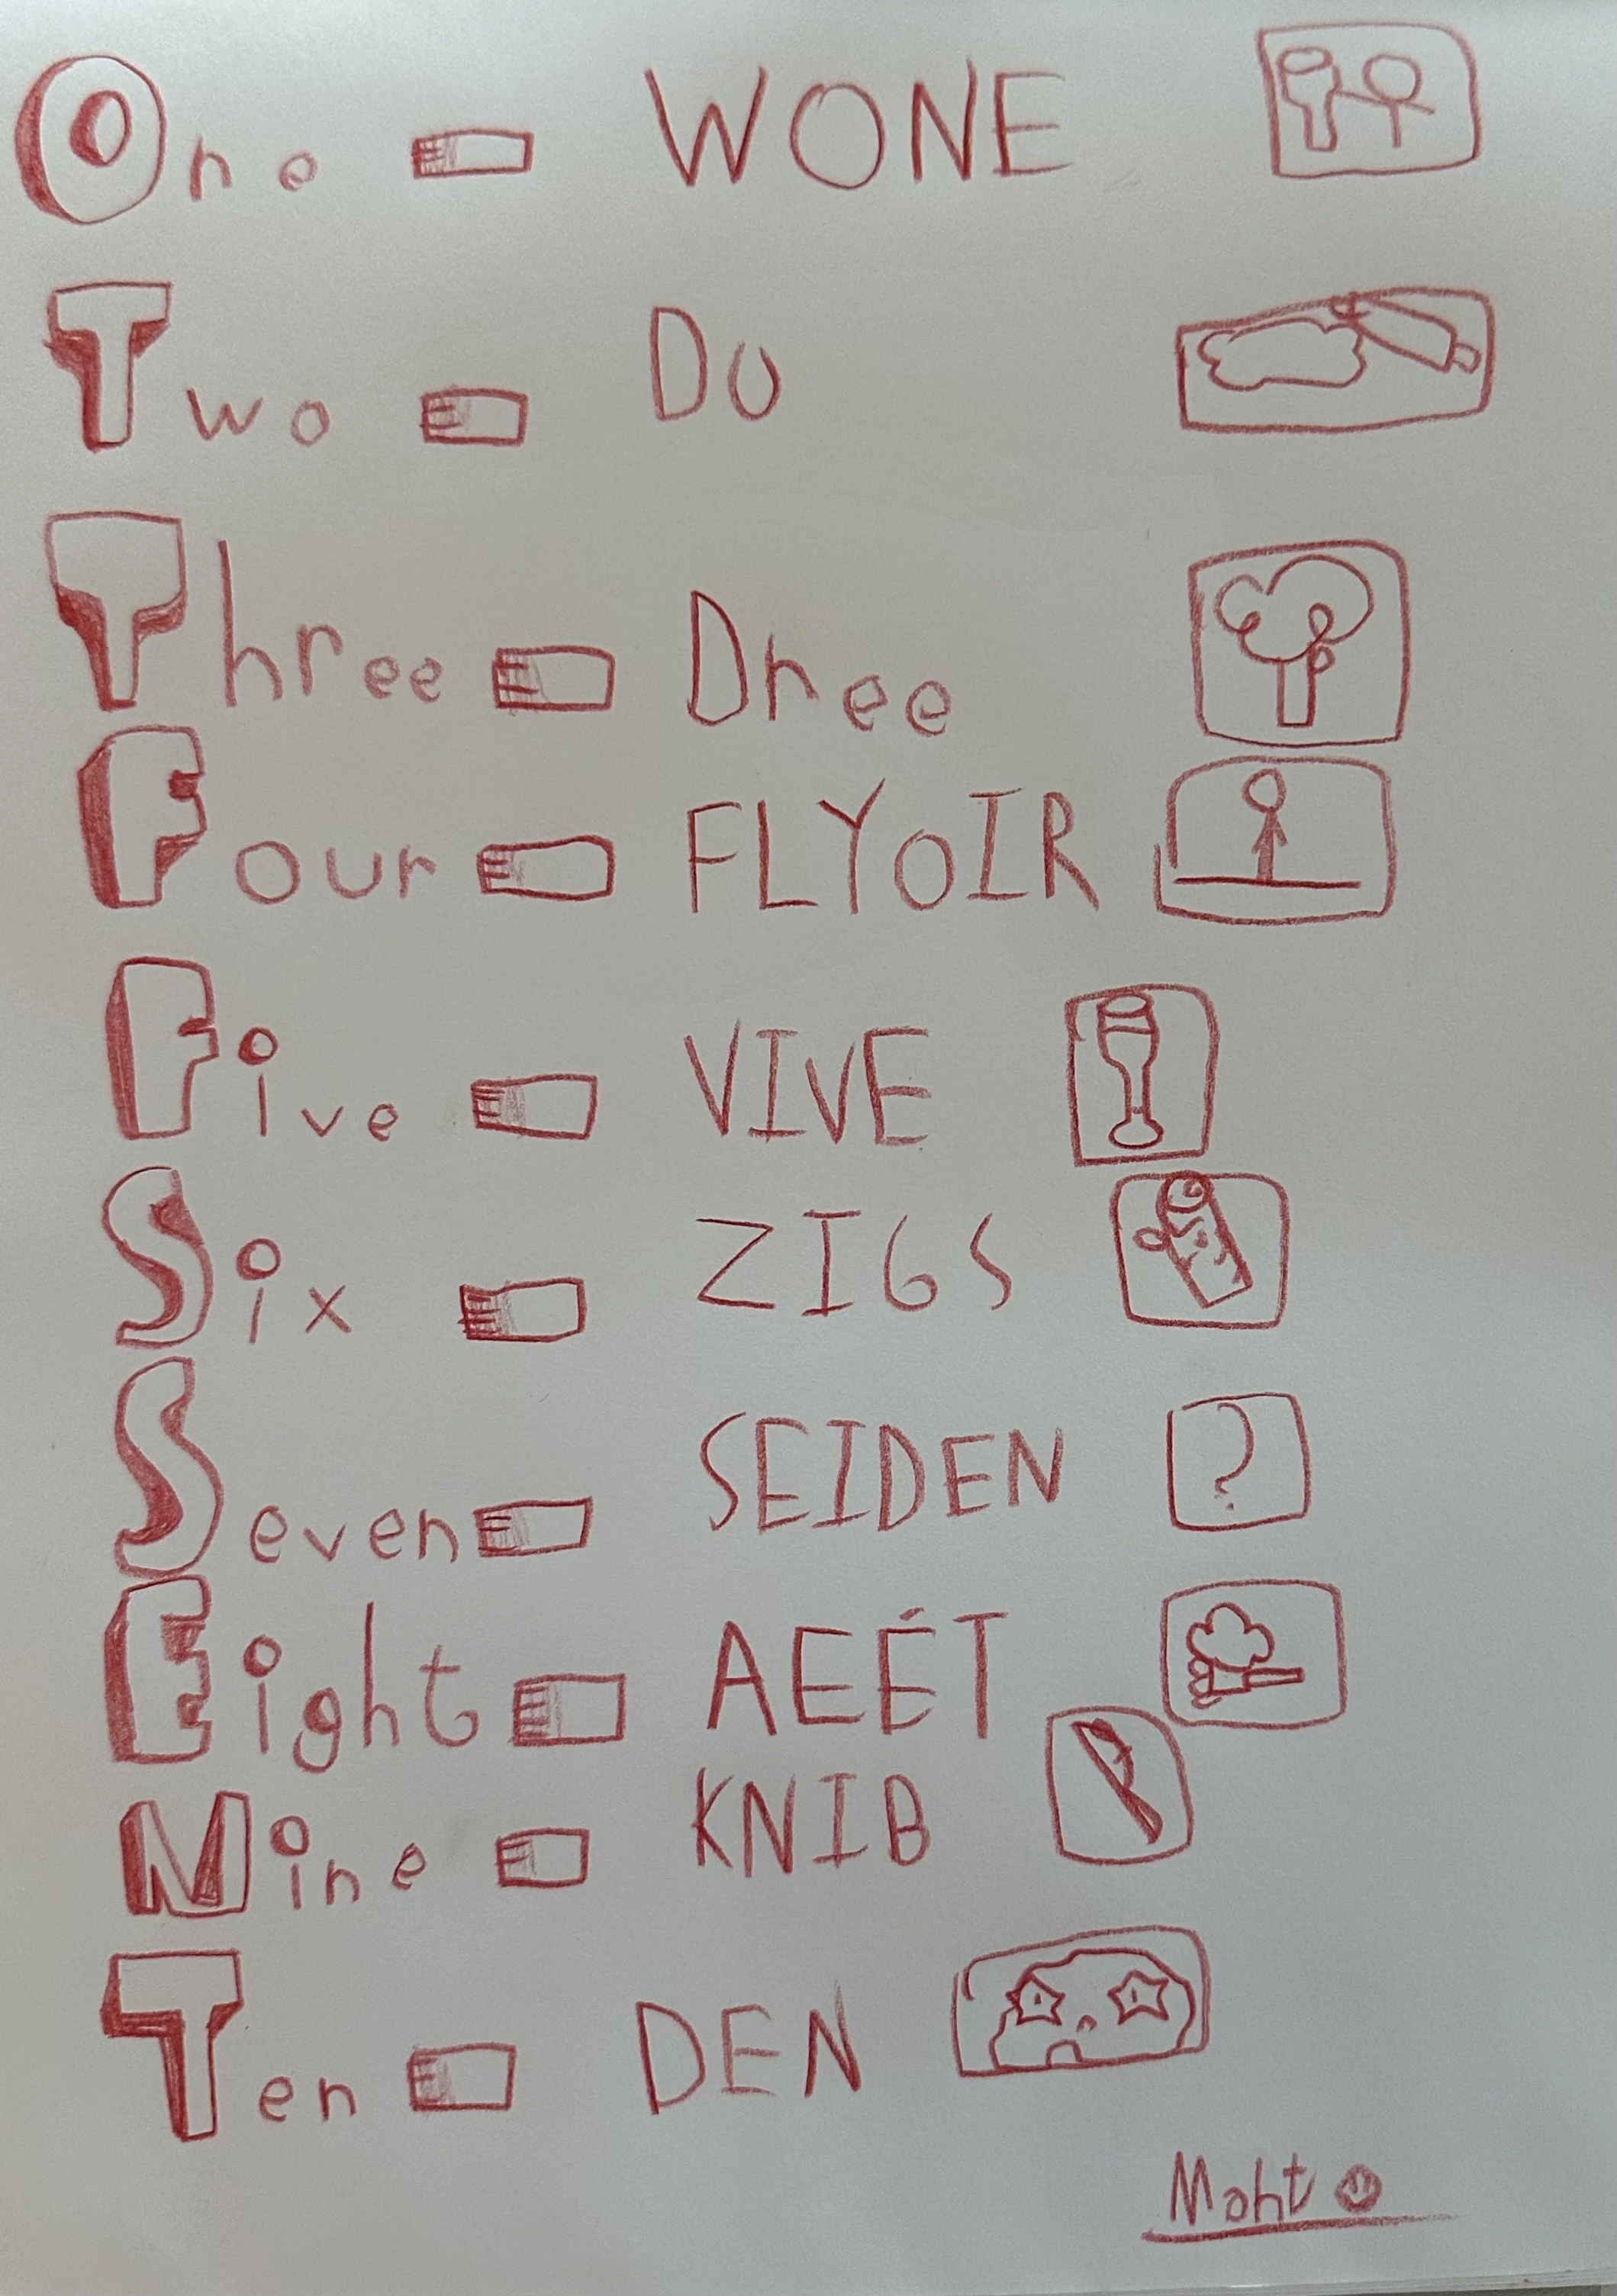 One WONE
Two DU
Three Dree
Four FLYOIR
Five VIVE
Six ZIGS
Seven SEIDEN ?
Eight AEÉT
Nine KNIB
Ten DEN
Moht